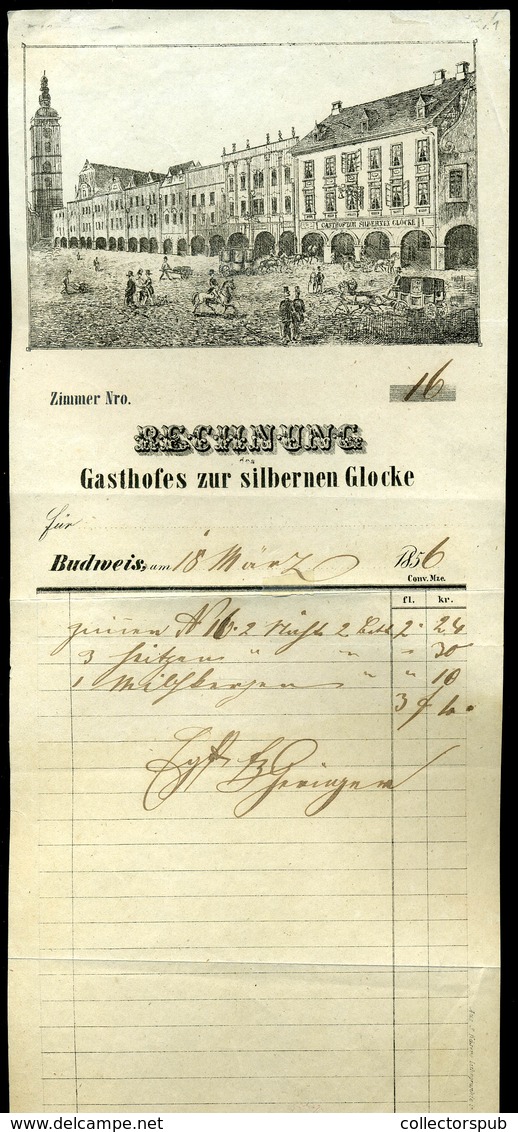 GASTHOF ZUR SILBERNEN GLOCKE
Zimmer Nro. 16
RECHNUNG
des
Gasthofes zur silbernen Glocke
für
Budweis, am 18 März 1856
Conv. Mze.
fl. kr.
Zimmer N 16. 2 Nächte 2 Bett 2 24
3 heitzen " " " 30
1 Milchkerzen " " 10
3 f
www.delcampe.net
collectorspub